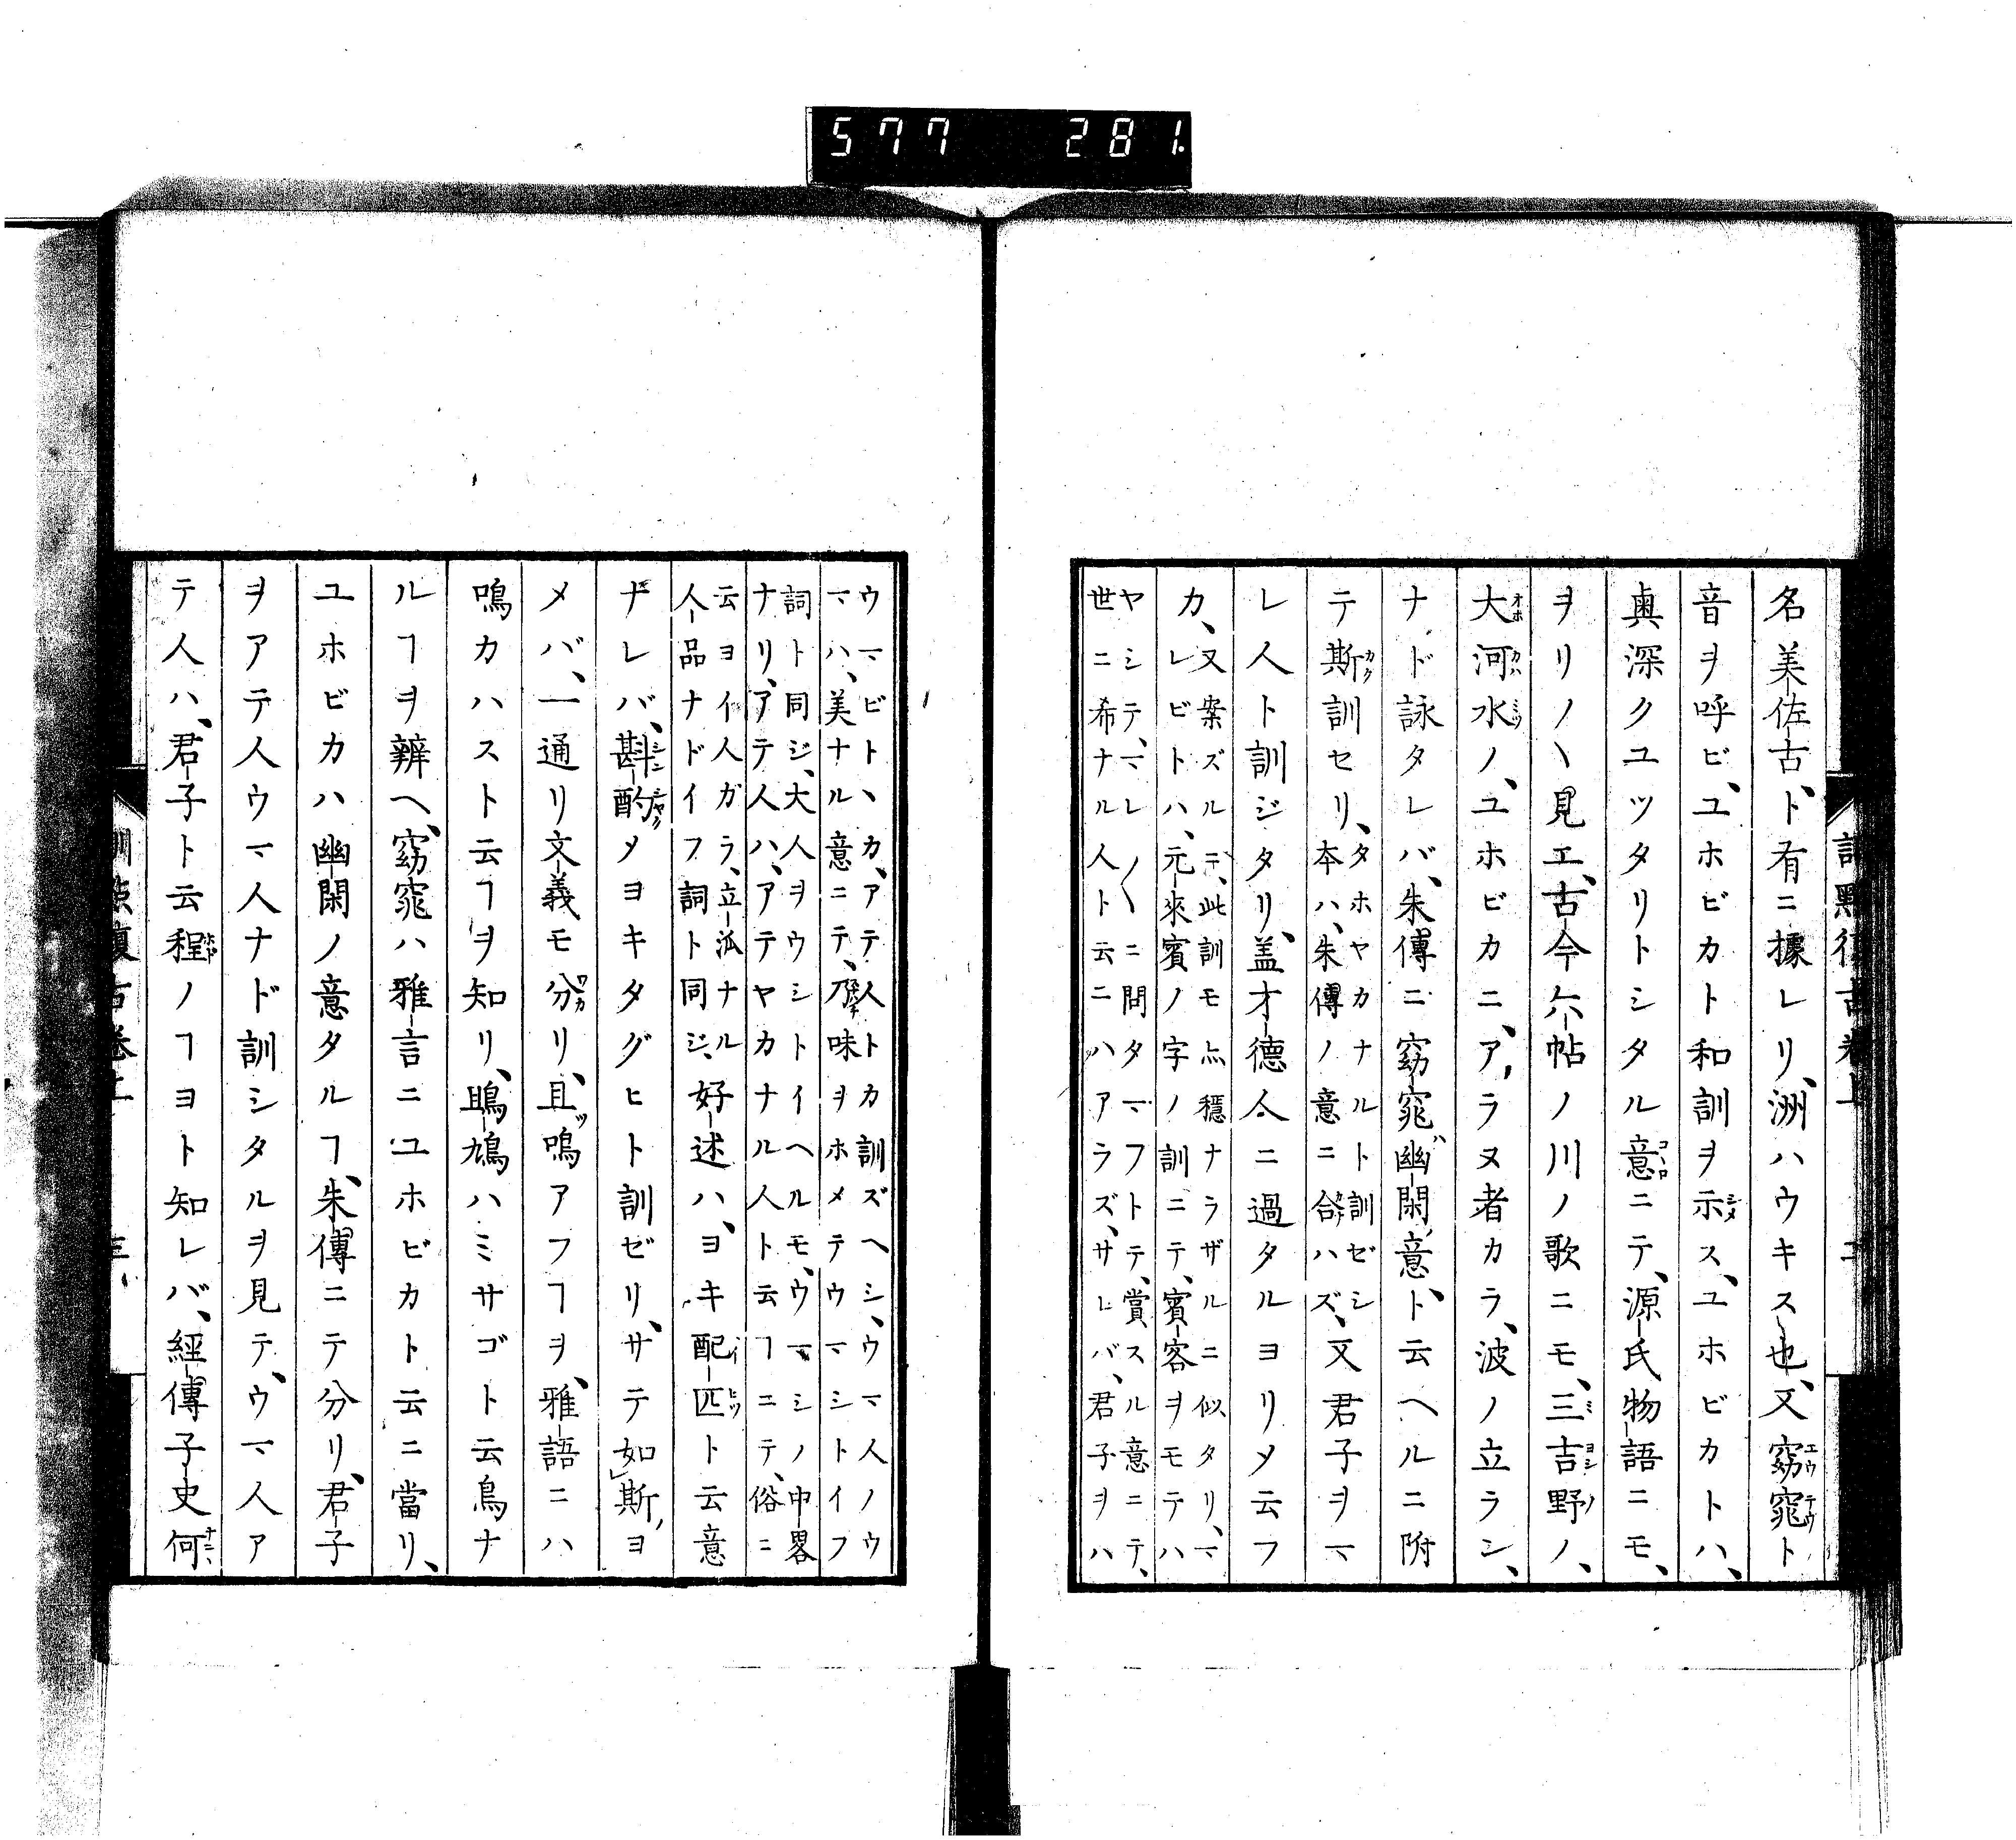 577 281
訓點復古卷上 二
名美佐古、ト有ニ據レリ、洲ハウキス也、又窈窕ト
音ヲ呼ビ、ユホビカト和訓ヲ示ス、ユホビカトハ、
奧深クユツタリトシタル意ニテ、源氏物語ニモ、
ヲリノヽ見エ、古今六帖ノ川ノ歌ニモ、三吉野ノ、
大河水ノ、ユホビカニ、アラヌ者カラ、波ノ立ラン、
ナド詠タレバ、朱傳ニ窈窕幽閑意、ト云ヘルニ附
テ斯訓セリ、タホヤカナルト訓ゼシ
本ハ、朱傳ノ意ニ合ハズ、又君子ヲマ
レ人ト訓ジタリ、盖才德人ニ過タルヨリメ云フ
カ、又案ズルニ、此訓モ亦穩ナラザルニ似タリ、マ
レビトハ、元來賓ノ字ノ訓ニテ、賓客ヲモテハ
ヤシテ、マレ〳〵ニ問タマフトテ、賞スル意ニテ、
世ニ希ナル人ト云ニハアラズ、サレバ、君子ヲハ
ウマビトヽカ、アテ人トカ訓ズヘシ、ウマ人ノウ
マハ、美ナル意ニテ、味ヲホメテウマシトイフ
詞ト同ジ、大人ヲウシトイヘルモ、ウマシノ中畧
ナリ、アテ人ハ、アテヤカナル人ト云ヿニテ、俗ニ
云ヨイ人ガラ、立派ナル
人品ナドイフ詞ト同ジ、好逑ハ、ヨキ配匹ト云意
ナレバ、斟酌メヨキタグヒト訓ゼリ、サテ如斯ヨ
メバ、一通リ文義モ分リ、且鳴アフヿヲ、雅語ニハ
鳴カハスト云ヿヲ知リ、鴡鳩ハミサゴト云鳥ナ
ルヿヲ辨ヘ、窈窕ハ雅言ニユホビカト云ニ當リ、
ユホビカハ幽閑ノ意タルヿ、朱傳ニテ分リ、君子
ヲアテ人ウマ人ナド訓シタルヲ見テ、ウマ人ア
テ人ハ、君子ト云程ノヿヨト知レバ、經傳子史何
訓點復古卷上 三